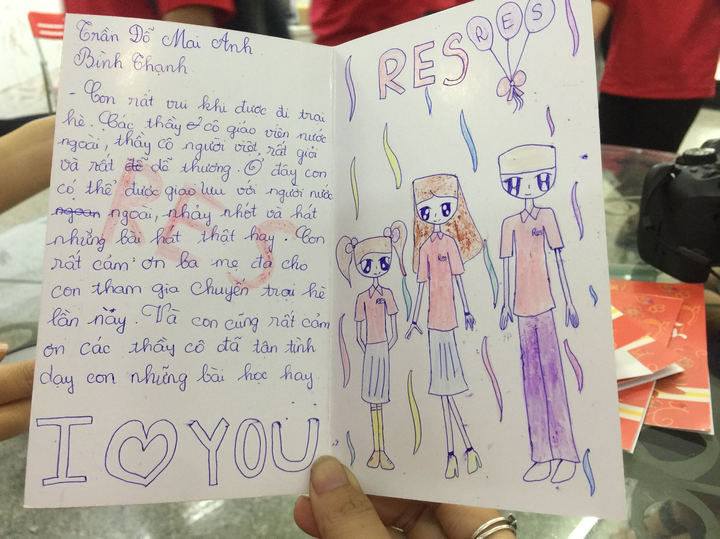 Trần Đỗ Mai Anh
Bình Thạnh
- Con rất vui khi được đi trại
hè. Các thầy cô giáo viên nước
ngoài, thầy cô người việt rất giỏi
và rất dễ thương. Ở đây con
có thể được giao lưu với người nước
ngoài, nhảy nhót và hát
những bài hát thật hay. Con
rất cám ơn ba mẹ đã cho
con tham gia chuyến trại hè
lần này. Và con cũng rất cảm
ơn các thầy cô đã tận tình
dạy con những bài học hay
RES
I YOU
RES
RES
Res
Res